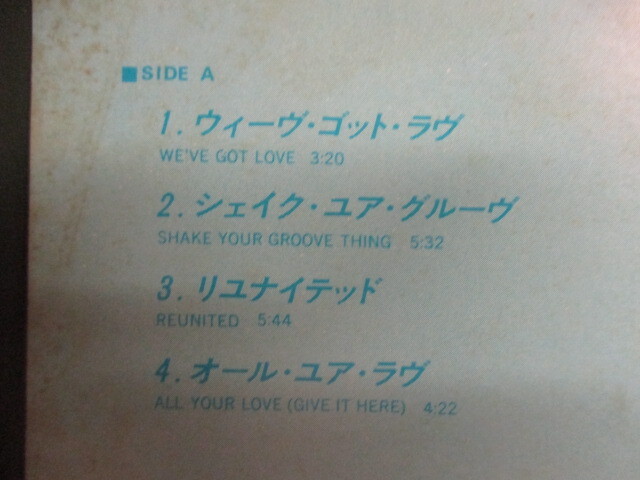 ■SIDE A
1. ウィーヴ・ゴット・ラヴ
WE'VE GOT LOVE 3:20
2. シェイク・ユア・グルーヴ
SHAKE YOUR GROOVE THING 5:32
3. リユナイテッド
REUNITED 5:44
4. オール・ユア・ラヴ
ALL YOUR LOVE (GIVE IT HERE) 4:22